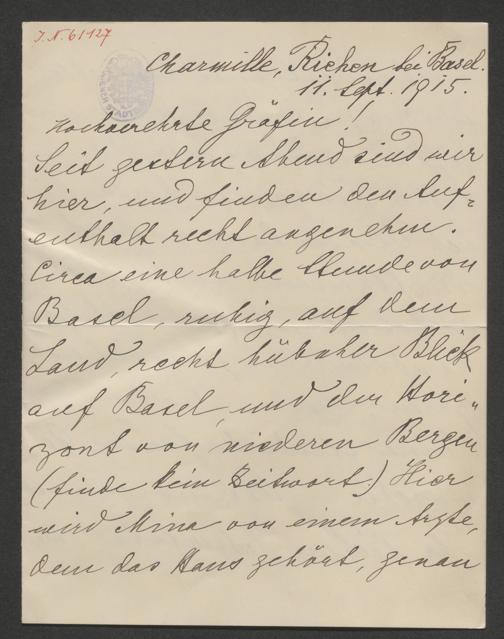 J.N. 61127
Charmille, Riehen bei Basel.
11. Sept. 1915.
Hochverehrte Gräfin!
Seit gestern Abend sind wir
hier, und finden den Auf-
enthalt recht angenehm.
Circa eine halbe Stunde von
Basel, ruhig, auf dem
Land, recht hübscher Blick
auf Basel, und den Hori-
zont von niederen Bergen
(finde kein Beitwort.) Hier
wird Mina von einem Arzte,
dem das Haus gehört, genau